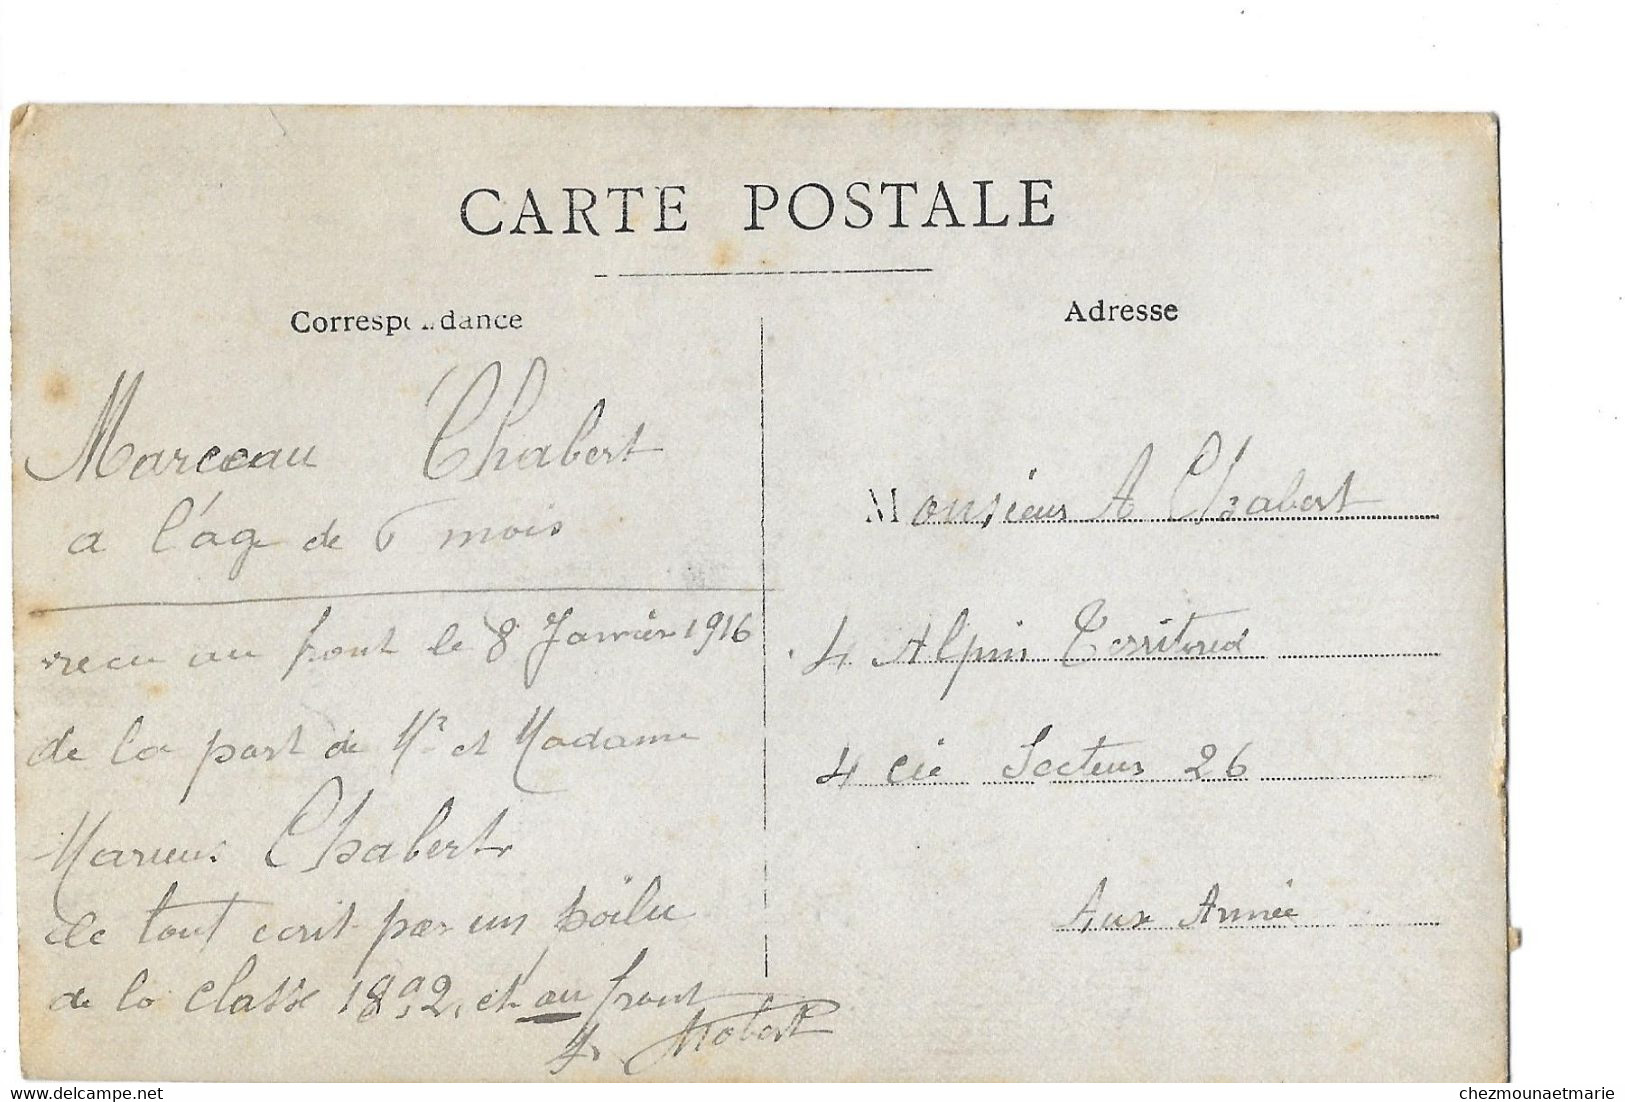 CARTE POSTALE
Correspondance
Marceau Chabert
a l'age de 6 mois
recu au front le 8 Janvier 1916
de la part de Mr et Madame
Marius Chabert
le tout ecrit par un poilu
de la classe 1892, et au front
Adresse
Monsieur A Chabert
4 Alpin Territorial
4 cie Secteur 26
Aux Armée
chezmounaetmarie